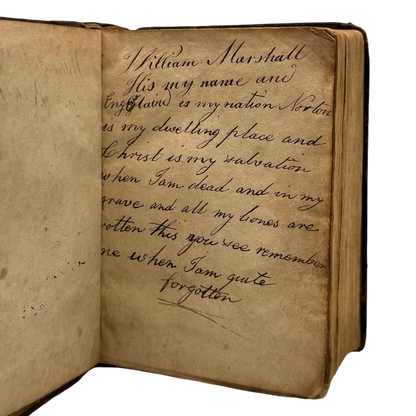 William Marshall
His my name and
England is my nation Norton
is my dwelling place and
Christ is my salvation
when I am dead and in my
grave and all my bones are
rotten this you see remember
me when I am quite
forgotten